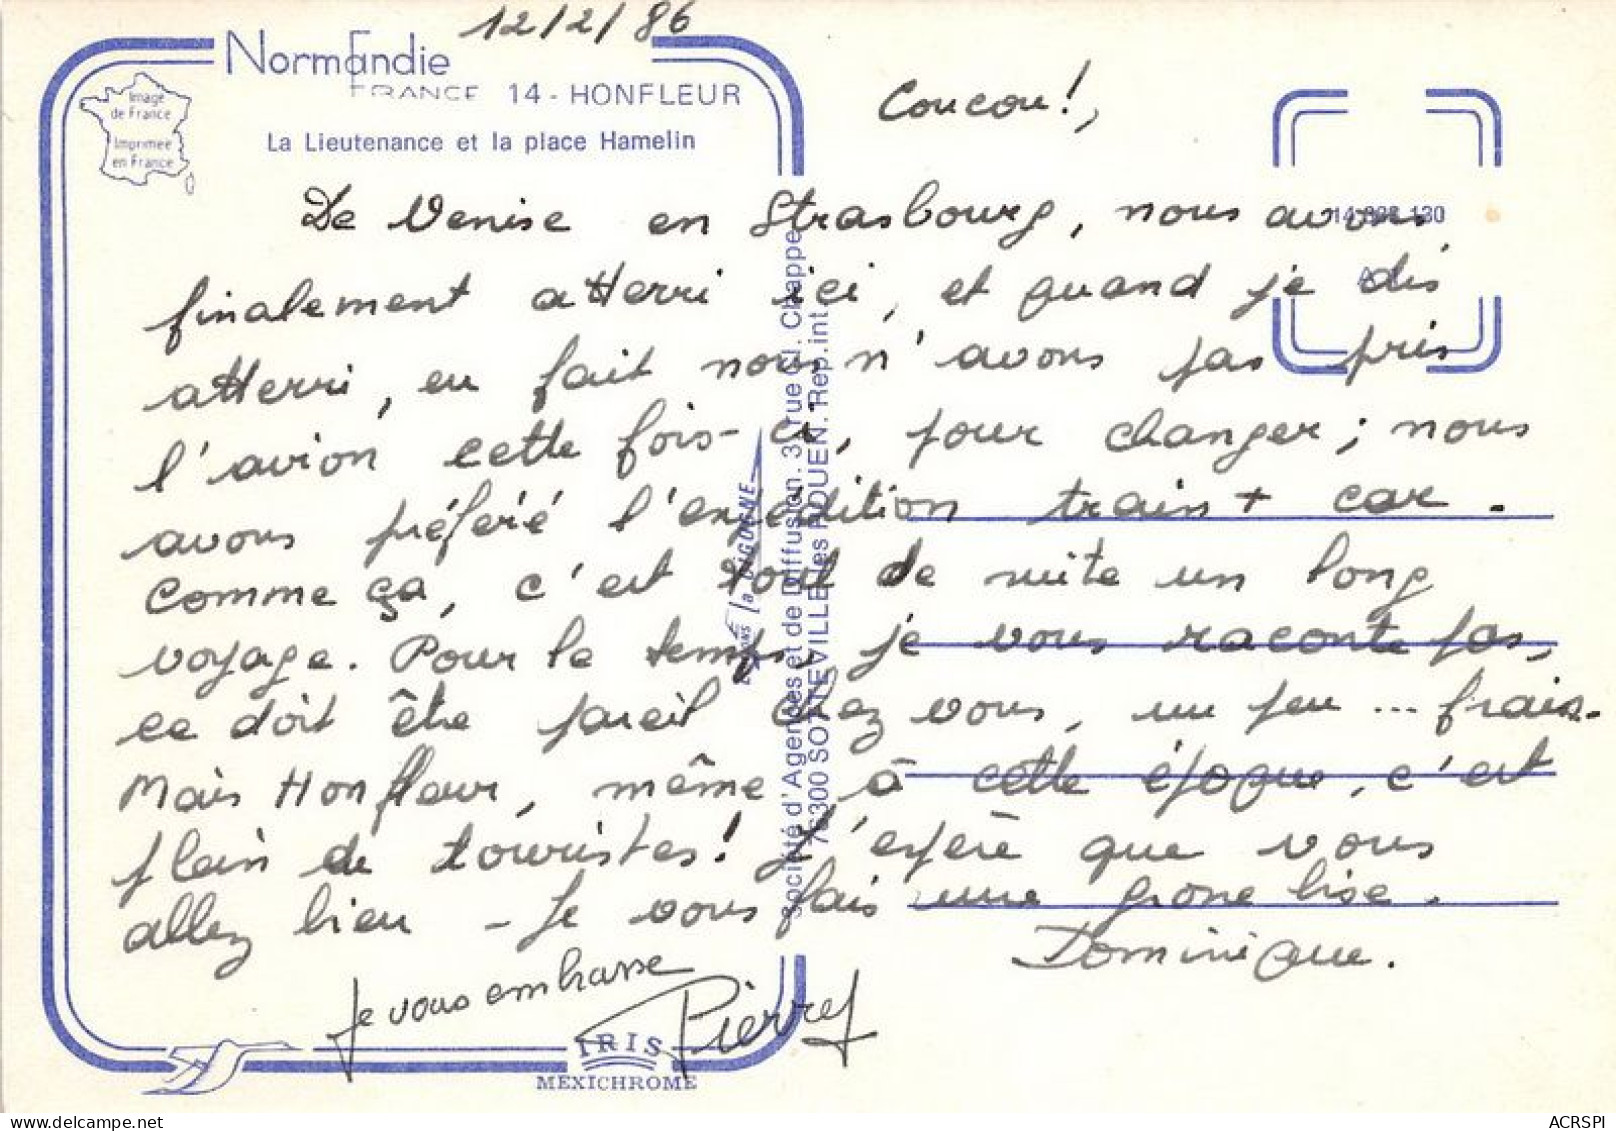 12/2/86
Normandie
FRANCE 14 - HONFLEUR
La Lieutenance et la place Hamelin
Image
de France
Imprimée
en France
Coucou!,
De Venise en Strasbourg, nous avons
finalement atterri ici, et quand je dis
atterri, en fait nous n'avons pas pris
l'avion cette fois-ci, pour changer; nous
avons préféré l'expédition train + car.
Comme ça, c'est tout de suite un long
voyage. Pour le temps, je vous raconte pas,
ce doit être pareil chez vous, un peu... frais.
Mais Honfleur, même à cette époque, c'est
plein de touristes! J'espère que vous
allez bien - Je vous fais une grone bise.
Dominique.
Je vous embrasse
Pierre
IRIS
MEXICHROME
la CIGOGNE
Société d'Agences et de Diffusion. 3, rue Cl. Chappe
76300 SOTTEVILLE-les-ROUEN. Rep. int.
ACRSPI